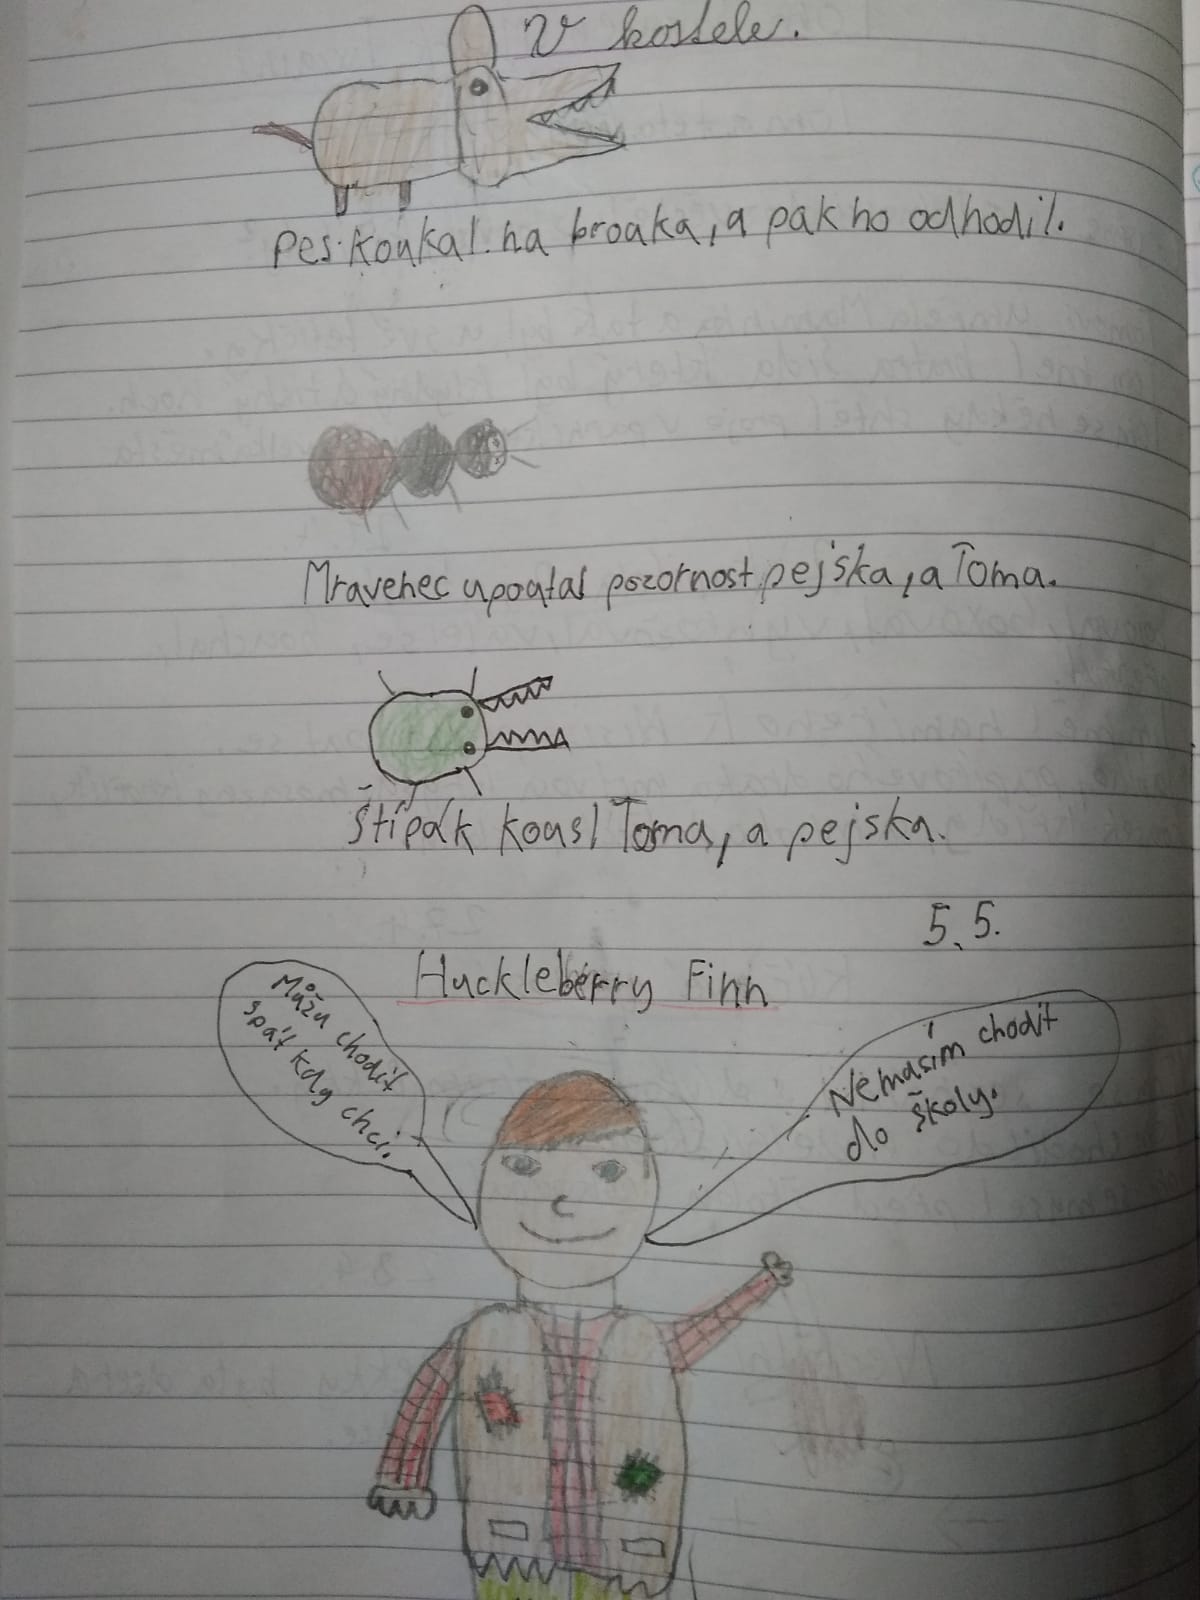 V kostele.
Pes koukal na brouka, a pak ho odhodil.
Mravenec upoutal pozornost pejska, a Toma.
Štípák kousl Toma, a pejska.
5.5.
Huckleberry Finn
Můžu chodit
spát kdy chci.
Nemusím chodit
do školy.